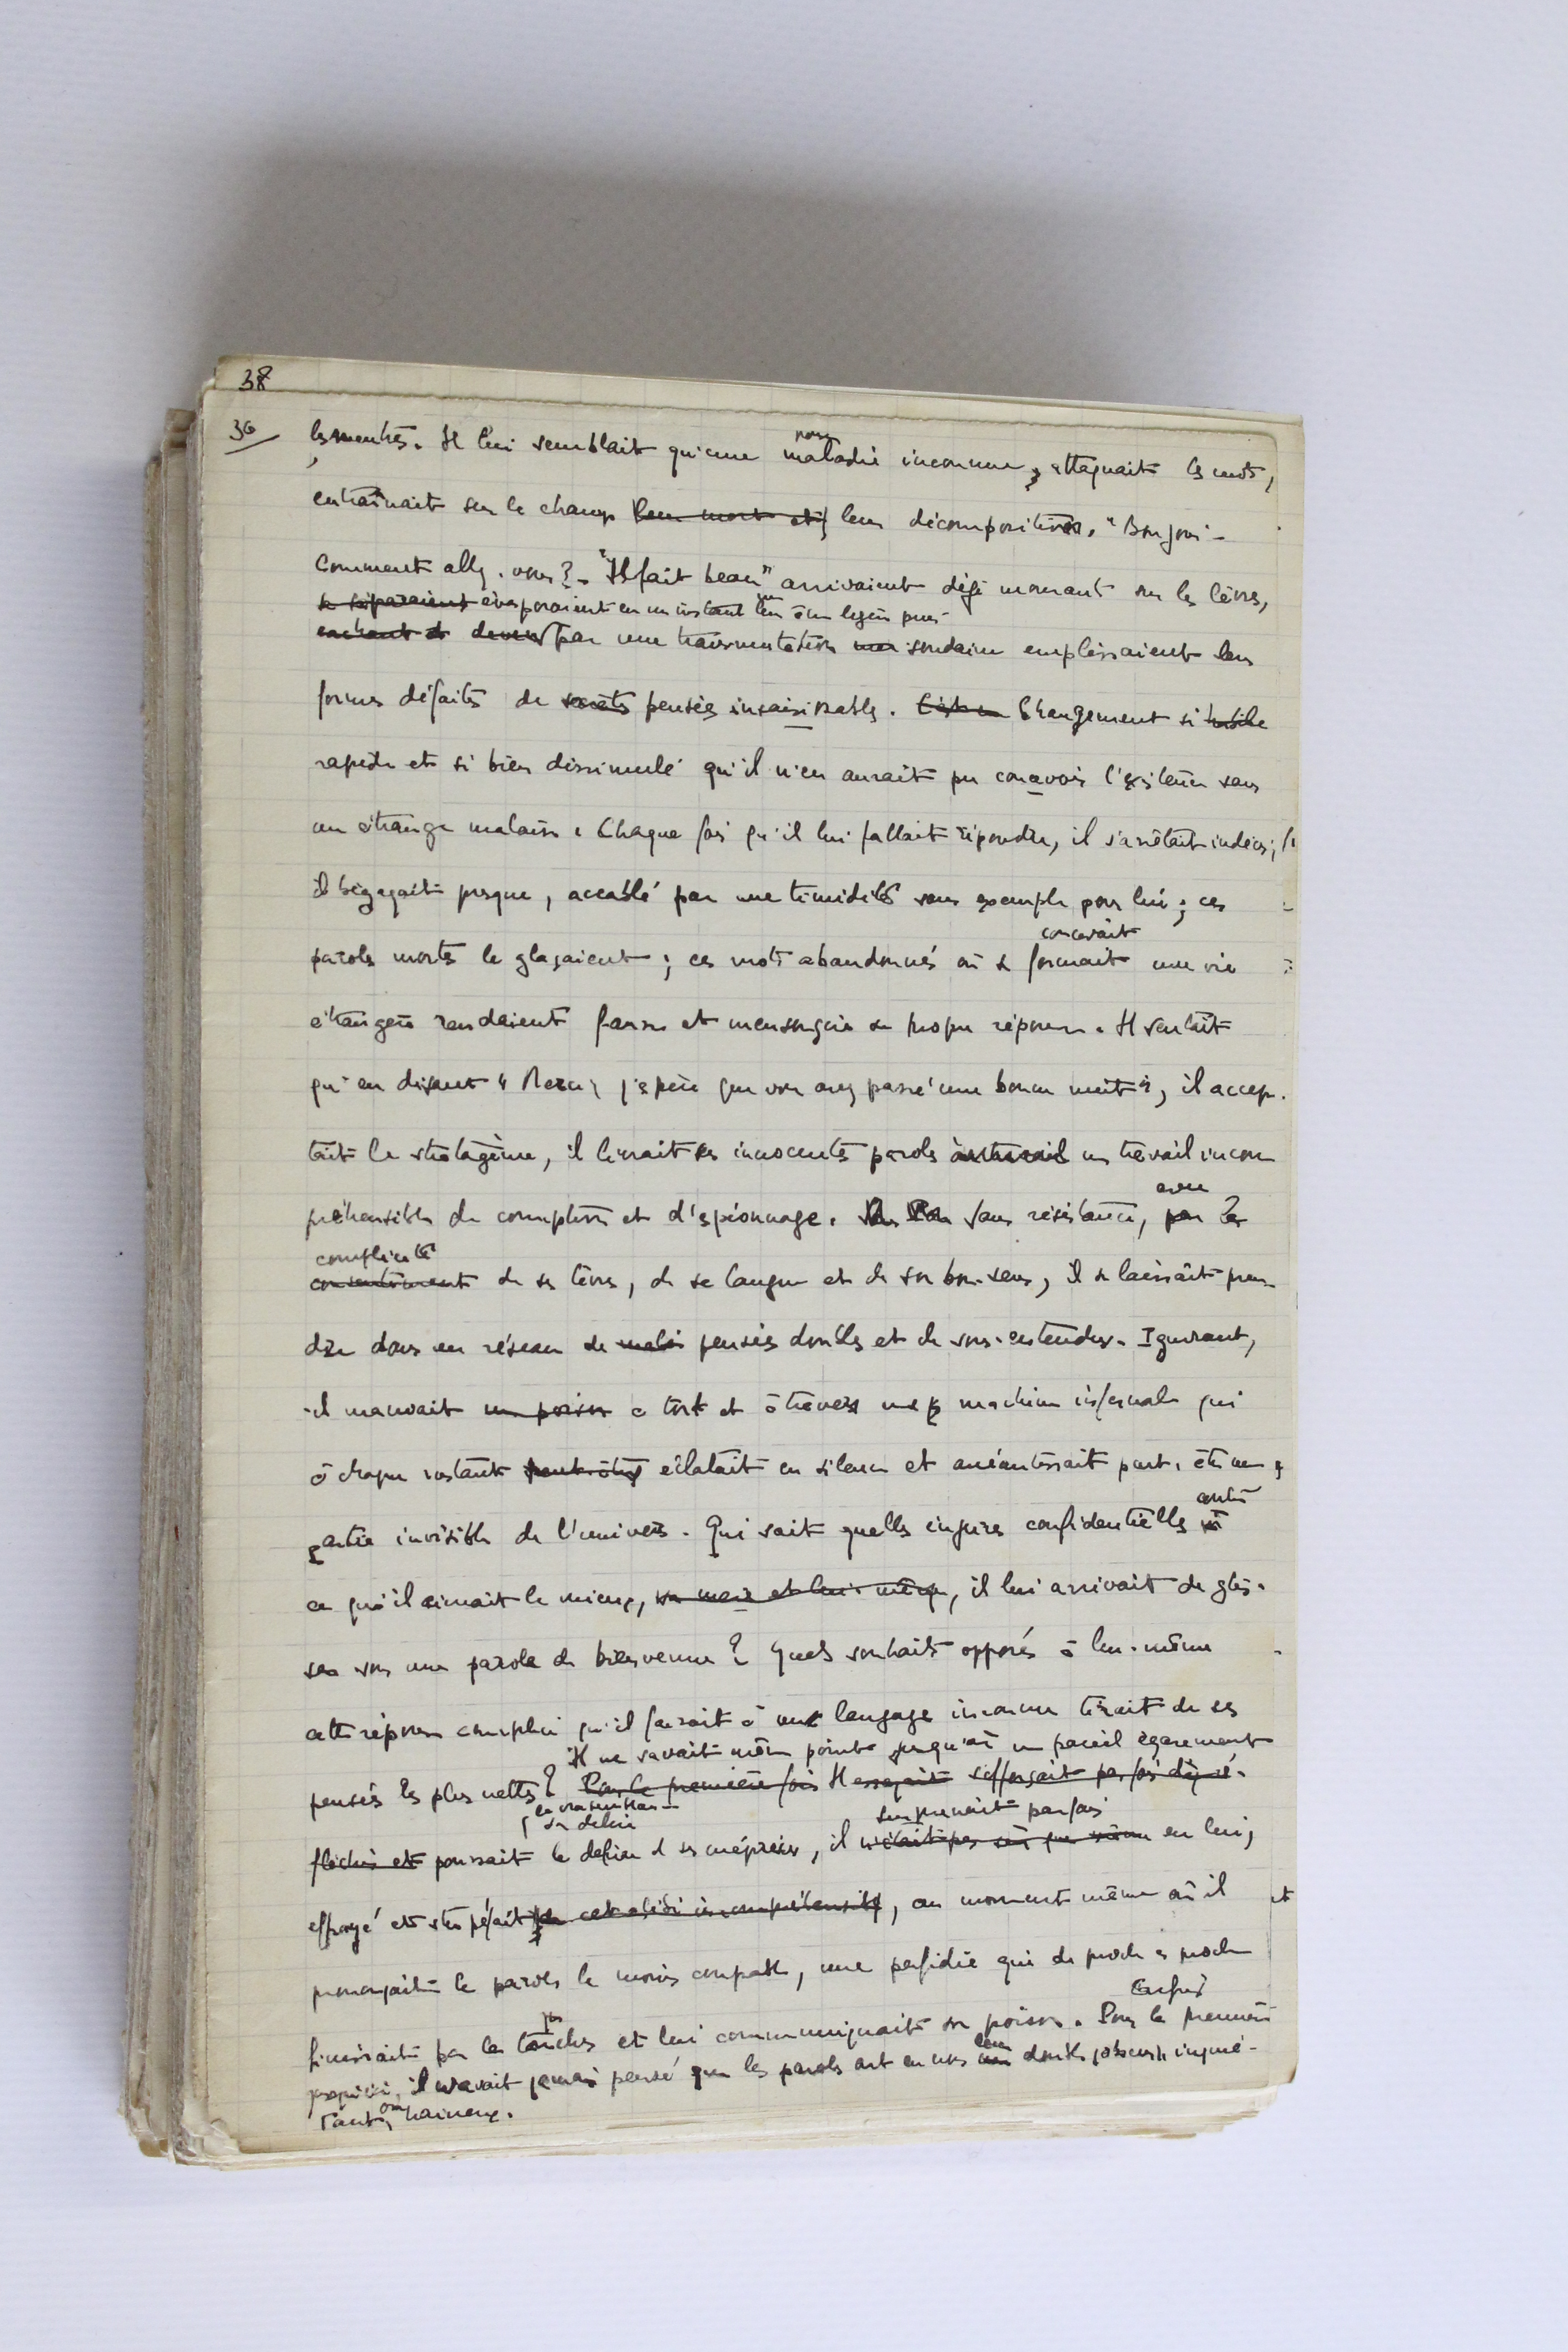 38
36
les mentés. Il lui semblait qu'une maladie inconnue attaquait les mots,
entraînait sur le champ leur mort et leur décomposition. "Bonjour -
Comment allez-vous? - "Il fait beau" arrivaient déjà mourant sur les lèvres,
se séparaient évaporaient en un instant
par une transmutation soudaine emplissaient leurs
formes défaites de secrets pensées insaisissables. C'était un Changement si
rapide et si bien dissimulé qu'il n'en aurait pu concevoir l'existence sans
un étrange malaise. Chaque fois qu'il lui fallait répondre, il s'arrêtait indécis;
il bégayait presque, accablé par une timidité sans exemple pour lui; ces
concevait
paroles mortes le glaçaient; ces mots abandonnés où se formait une vie
étrangère rendaient fausse et mensongère sa propre réponse. Il sentait
qu'en disant "Merci, j'espère que vous avez passé une bonne nuit", il accep-
tait le stratagème, il livrait ses innocentes paroles à un travail incom
préhensible de corruption et d'espionnage. Sans résistance, par la
avec
complicité
consentement de ses lèvres, de sa langue et de son bon-sens, il se laissait pren
dre dans un réseau de pensées doubles et de sous-entendus. Ignorant,
il maniait un poison à tort et à travers une machine infernale qui
à chaque instant peut-être éclatait en silence et anéantissait peut-être une
partie invisible de l'univers. Qui sait quelles injures confidentielles
contre
ce qu'il aimait le mieux, sa mère et lui-même, il lui arrivait de glis-
ser sous une parole de bienvenue? Quels souhaits opposés à lui-même
cette réponse complice qu'il faisait à un langage inconnu tirait de ses
Il ne savait même point jusqu'où un pareil égarement
pensées les plus nettes? Pour la première fois Il essayait s'efforçait parfois
en vraisemblan
sa délire
surprenait parfois
poussait le délire et ses méprises, il n'était pas sûr que même en lui,
effrayé et stupéfait par cet alibi incompréhensible, au moment même où il
et
prononçait la parole la moins coupable, une perfidie qui de proche en proche
Enfin
finissait par les toucher et lui communiquait son poison. Pour la première
jusqu'ici, il n'avait jamais pensé que les paroles ont en nous leur double obscur, injurié-
rant, ou haineux.